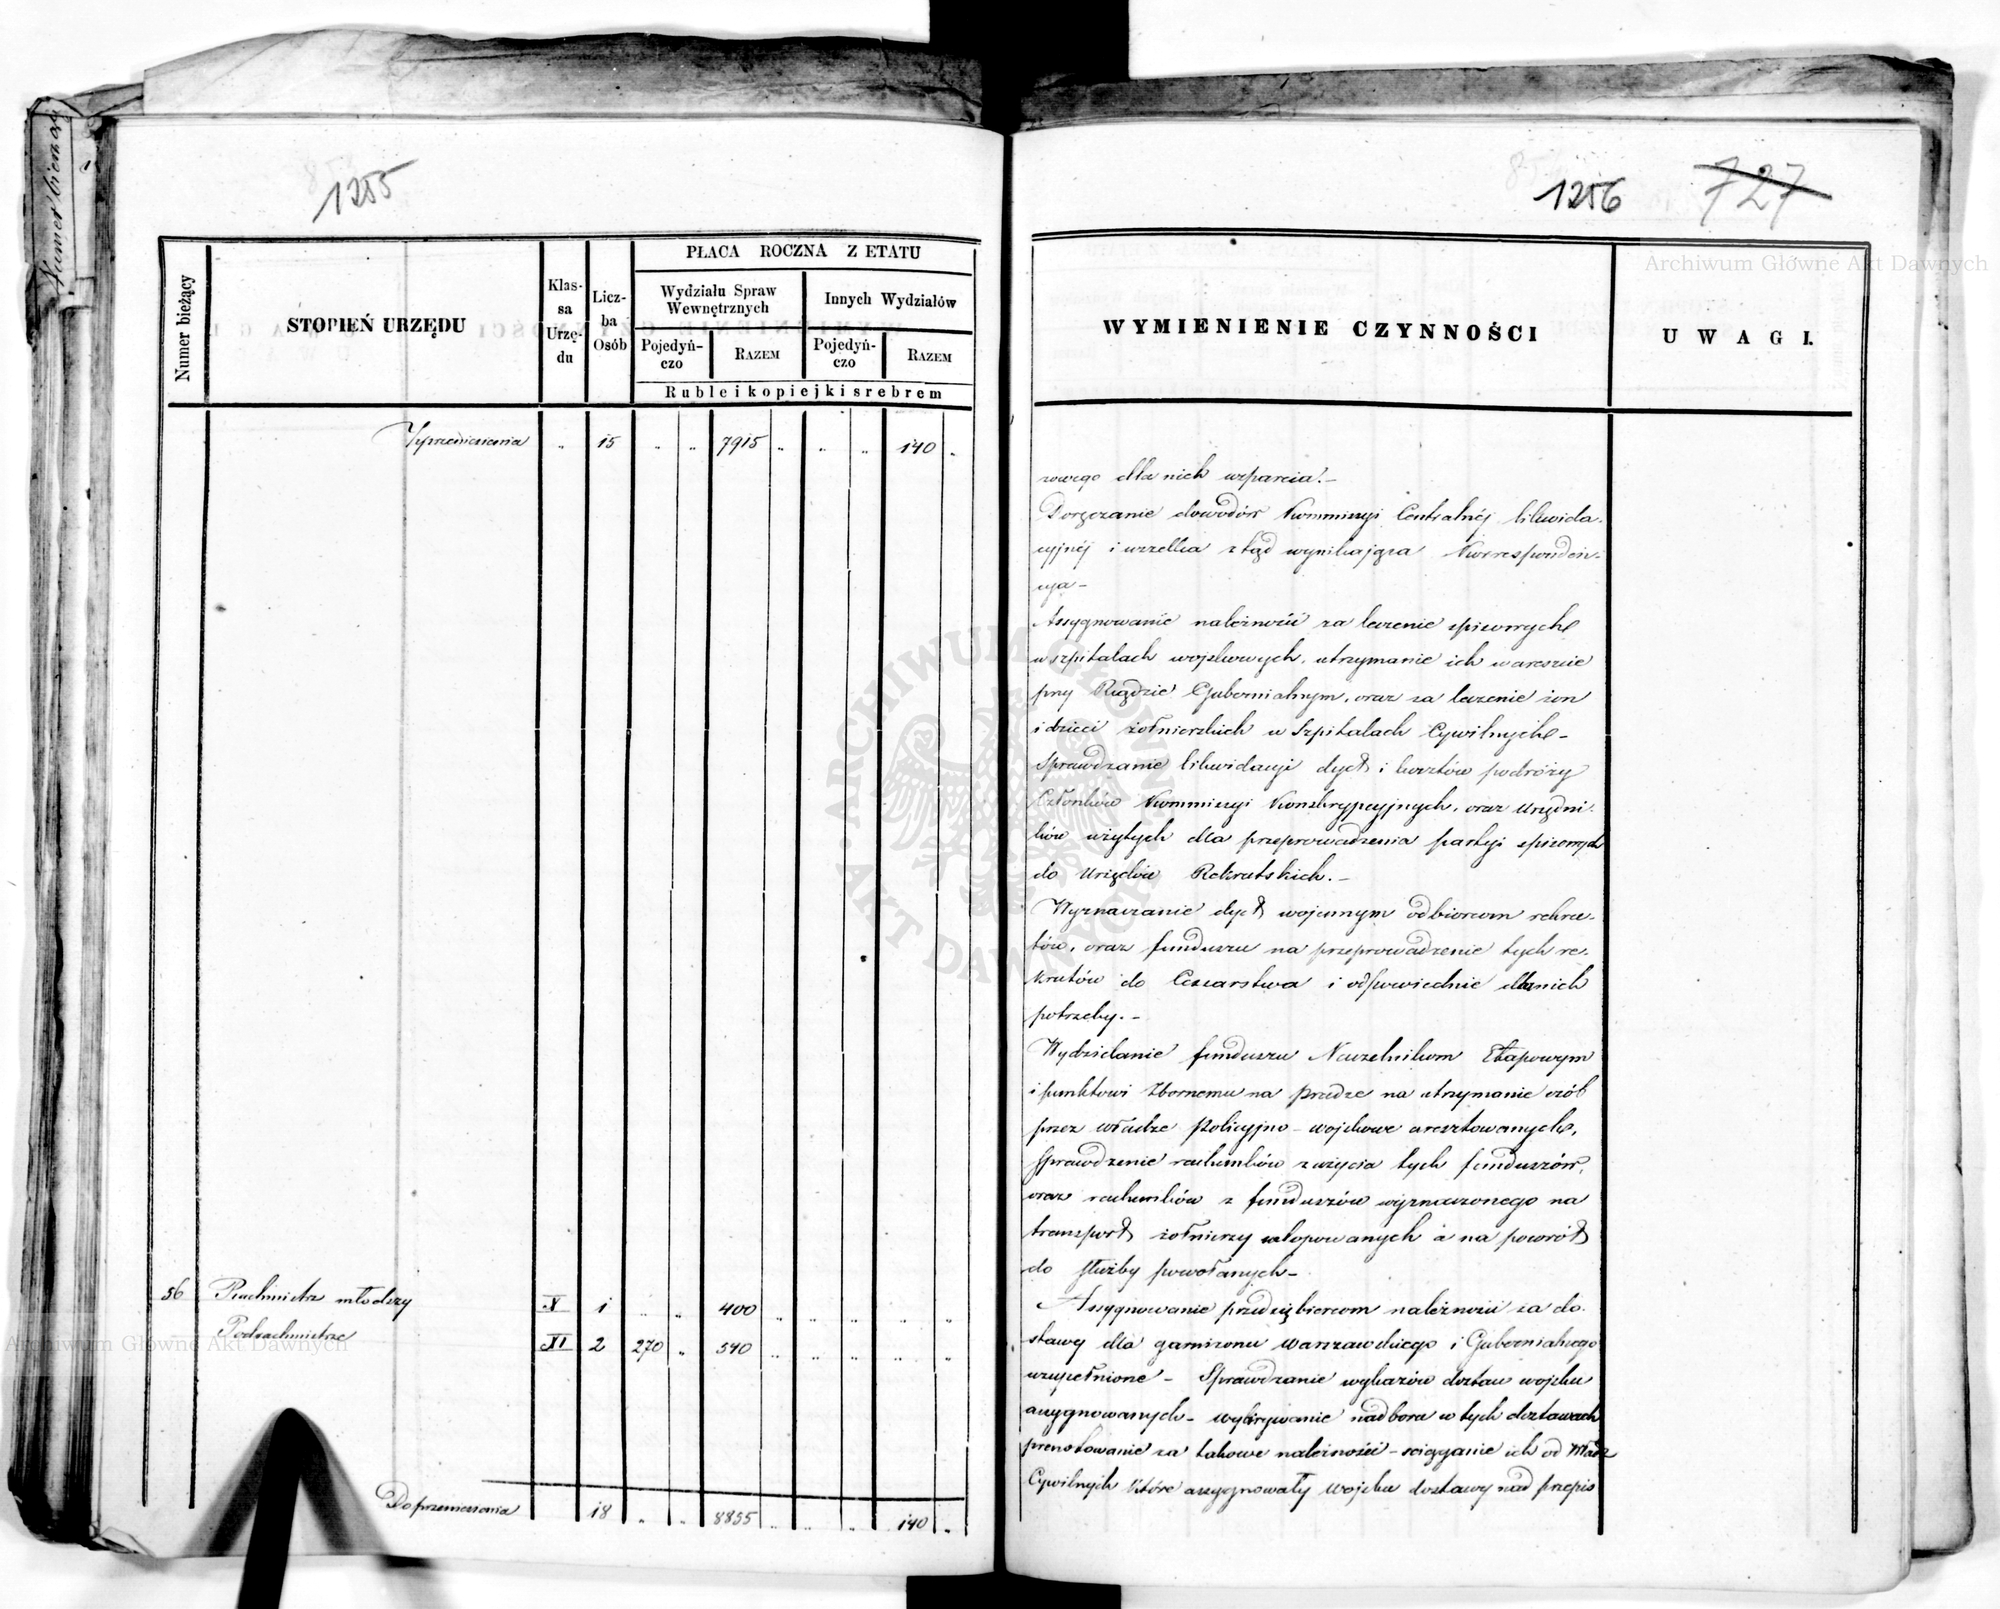 Numer bieżący
1255
Numer bieżący
STOPIEŃ URZĘDU
Klas-
sa
Urzę-
du
Licz-
ba
Osób
PŁACA ROCZNA Z ETATU
Wydziału Spraw
Wewnętrznych
Innych Wydziałów
Pojedyń-
czo
RAZEM
Pojedyń-
czo
RAZEM
Ruble i kopiejki srebrem
Z przeniesienia " 15 " " 7915 " " " 140 "
56 Rachmistrz młodszy X 1 " " 400 " " " " "
Podrachmistrze XI 2 270 " 540 " " " " "
Do przeniesienia 18 " " 8855 " " " 140 "
1256 727
WYMIENIENIE CZYNNOŚCI
UWAGI.
rowego dla nich wsparcia.-
Doręczanie dowodów Kommissyi Centralnéj likwida-
cyjnéj i wszelka ztąd wynikająca Korresponden-
cya-
Assygnowanie należności za leczenie spisowych
w szpitalach wojskowych, utrzymanie ich w areszcie
przy Rządzie Gubernialnym, oraz za leczenie żon
i dzieci żołnierskich w Szpitalach Cywilnych-
Sprawdzanie likwidacyi dyet i kosztów podróży
Członków Kommissyi Konskrypcyjnych, oraz Urzędni-
ków użytych dla przeprowadzenia partyi spisowych
do Urzędów Rekrutskich.-
Wyznaczanie dyet wojennym odbiorcom rekru-
tów, oraz funduszu na przeprowadzenie tych re-
krutów do Cesarstwa i odpowiednie dla nich
potrzeby.-
Wydzielanie funduszu Naczelnikom Etapowym
i punktowi Zbornemu na Pradze na utrzymanie osób
przez władze policyjno-wojskowe aresztowanych,
Sprawdzenie rachunków z użycia tych funduszów,
oraz rachunków z funduszów wyznaczonego na
transport żołnierzy urlopowanych a na powrót
do służby powołanych-
Assygnowanie przedsiębiercom należności za do-
stawy dla garnizonu Warszawskiego i Gubernialnego
uzupełnione- Sprawdzanie wykazów dostaw wojsku
assygnowanych- wykrywanie nadboru w tych dostawach
prenotowanie za takowe należności- ściąganie ich od Władz
Cywilnych które assygnowały wojsku dostawy nad przepis
Archiwum Główne Akt Dawnych
Archiwum Główne Akt Dawnych
ARCHIWUM GŁÓWNE AKT DAWNYCH